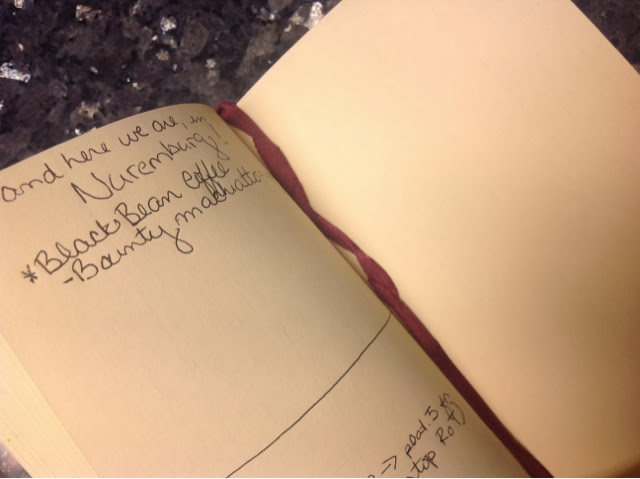 and here we are, in
Nuremburg!
*Black Bean Coffee
-Bounty
-> plat. 5
top Ro